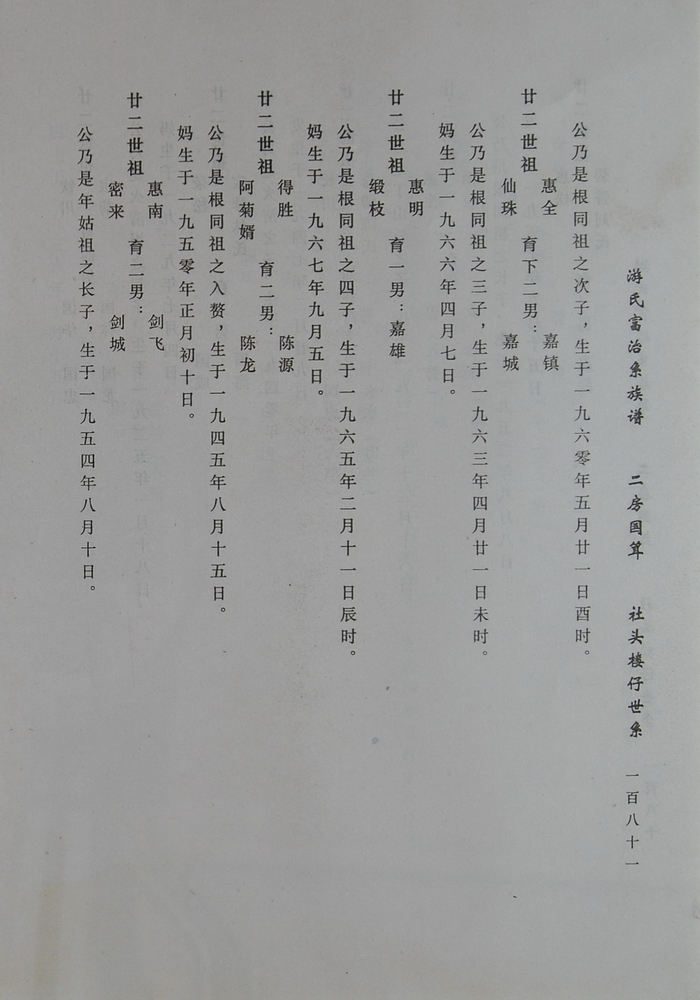 游氏富治系族谱 二房国茸 社头楼仔世系 一百八十一
公乃是根同祖之次子，生于一九六零年五月廿一日酉时。
廿二世祖 惠全 仙珠 育下二男：嘉镇 嘉城
公乃是根同祖之三子，生于一九六三年四月廿一日未时。
妈生于一九六六年四月七日。
廿二世祖 惠明 缎枝 育一男：嘉雄
公乃是根同祖之四子，生于一九六五年二月十一日辰时。
妈生于一九六七年九月五日。
廿二世祖 得胜 阿菊婿 育二男：陈源 陈龙
公乃是根同祖之入赘，生于一九四五年八月十五日。
妈生于一九五零年正月初十日。
廿二世祖 惠南 密来 育二男：剑飞 剑城
公乃是年姑祖之长子，生于一九五四年八月十日。